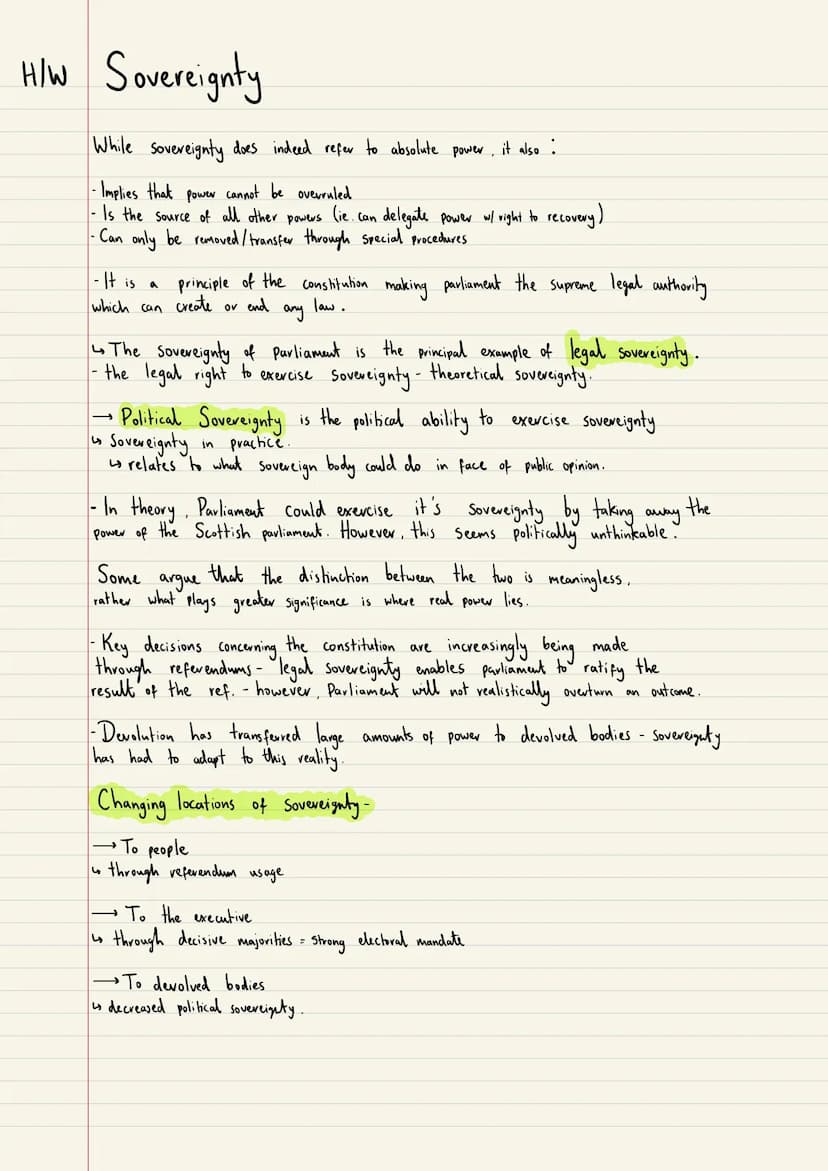 H/W Sovereignty
While sovereignty does indeed refer to absolute power, it also :
- Implies that power cannot be overruled
- Is the source of all other powers (ie. can delegate power w/ right to recovery)
- Can only be removed/transfer through special procedures
- It is a principle of the constitution making parliament the supreme legal authority
which can create or end any law.
↳ The sovereignty of parliament is the principal example of legal sovereignty.
- the legal right to exercise sovereignty - theoretical sovereignty.
→ Political Sovereignty is the political ability to exercise sovereignty
↳ sovereignty in practice.
↳ relates to what sovereign body could do in face of public opinion.
- In theory, Parliament could exercise it's sovereignty by taking away the
power of the Scottish parliament. However, this seems politically unthinkable.
Some argue that the distinction between the two is meaningless,
rather what plays greater significance is where real power lies.
- Key decisions concerning the constitution are increasingly being made
through referendums - legal sovereignty enables parliament to ratify the
result of the ref. - however, Parliament will not realistically overturn an outcome.
- Devolution has transferred large amounts of power to devolved bodies - sovereignty
has had to adapt to this reality.
Changing locations of sovereignty -
→ To people
↳ through referendum usage
→ To the executive
↳ through decisive majorities = strong electoral mandate
→ To devolved bodies
↳ decreased political sovereignty.